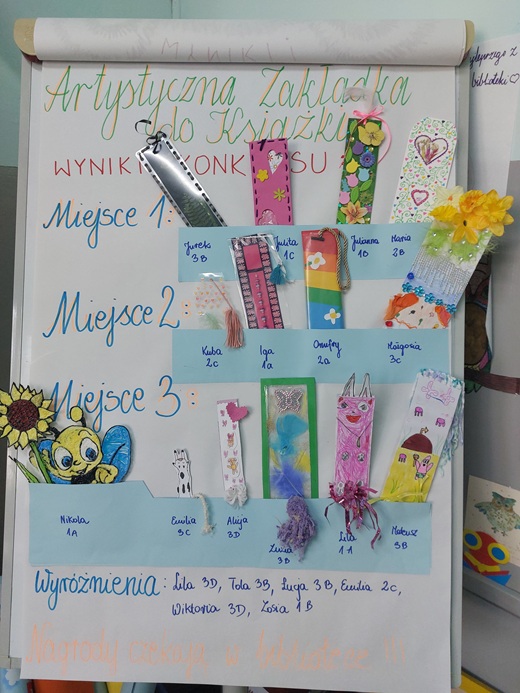 Artystyczna Zakładka
do Książki
WYNIKI KONKURSU:
Miejsce 1:
Jurek 3B
Julita 1C
Julianna 1B
Maria 2B
Miejsce 2:
Kuba 2c
Iga 1a
Onufry 2a
Małgosia 3c
Miejsce 3:
Nikola 1A
Emilia 3C
Alicja 3D
Zuzia 3B
Lila
Mateusz 3B
Wyróżnienia: Lila 3D, Tola 3B, Łucja 3B, Emilia 2c,
Wiktoria 3D, Zosia 1B
Nagrody czekają w bibliotece !!!
biblioteki